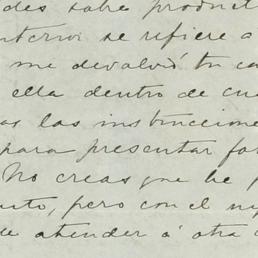 des sobre product
se refiere a
me devolvió tu ca
ella dentro de cu
as las instruccione
para presentar for
No creas que he p
uto, pero con el
de atender á otra c